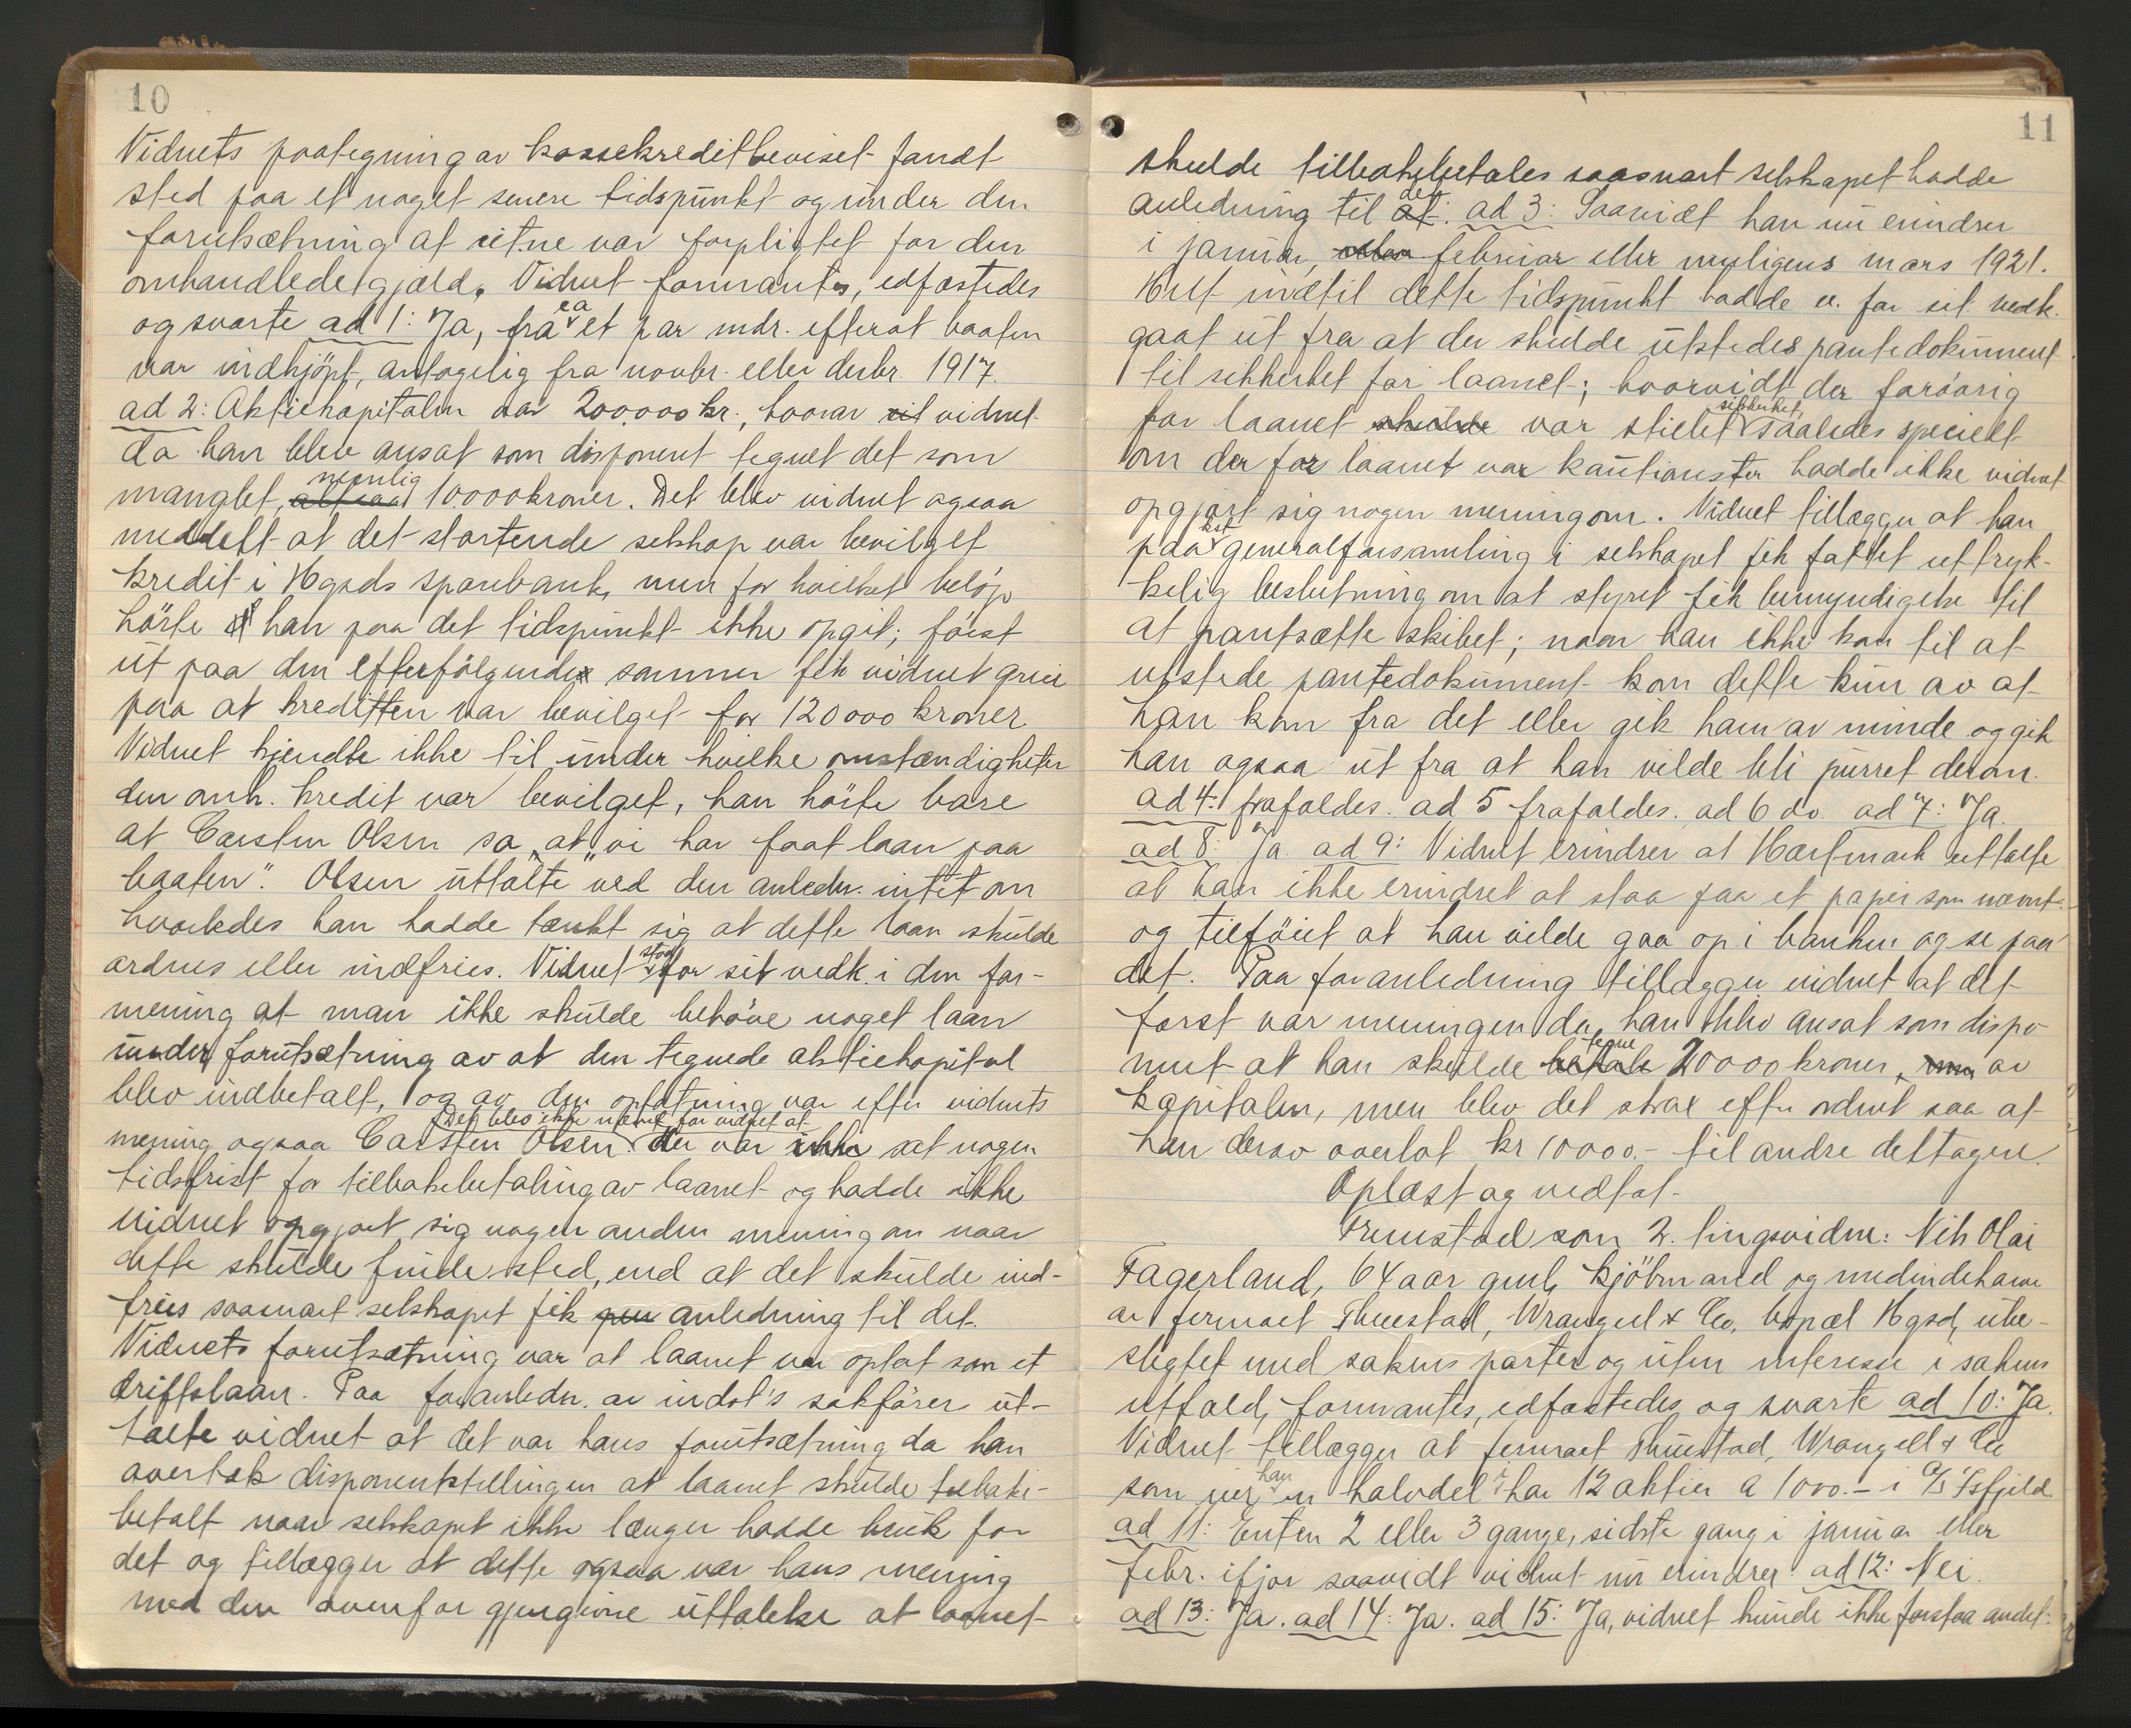 10
Vidnets paategning av kassekreditbeviset fandt
sted paa et noget senere tidspunkt og under den
forutsætning at cit.ne var forpligtet for den
omhandlede gjæld. Vidnet formantes, edfæstedes
og svarte ad 1: Ja, fra ca et par mdr. efterat baaten
var indkjöpt, antagelig fra novbr. eller decbr. 1917.
ad 2: Aktiekapitalen var 200.000 kr., hvorav vidnet
da han blev ansat som disponent tegnet det som
manglet, nemlig 10.000 kroner. Det blev vidnet ogsaa
meddelt at det startende selskap var bevilget
kredit i Hgsds sparebank, men for hvilket belöp
hörte han paa det tidspunkt ikke opgit; först
ut paa den efterfölgende sommer fik vidnet greie
paa at kreditten var bevilget for 120000 kroner
Vidnet kjendte ikke til under hvilke omstændigheter
den omh. kredit var bevilget, han hörte bare
at Carsten Olsen sa, at "vi har faat laan paa
baaten". Olsen uttalte ved den anledn. intet om
hvorledes han hadde tænkt sig at dette laan skulde
ordnes eller indfries. Vidnet stod for sit vedk. i den for-
mening at man ikke skulde behöve noget laan
under forutsætning av at den tegnede aktiekapital
blev indbetalt, og av den opfatning var efter vidnets
mening ogsaa Carsten Olsen. Det blev ikke nævnt for vidnet at der var sat nogen
tidsfrist for tilbakebetaling av laanet og hadde ikke
vidnet opgjort sig nogen anden mening om naar
dette skulde finde sted, end at det skulde ind-
fries saasnart selskapet fik anledning til det.
Vidnets forutsætning var at laanet var optat som et
driftslaan. Paa foranledn. av indst's sakförer ut-
talte vidnet at det var hans forutsætning da han
overtok disponentstillingen at laanet skulde tilbake-
betalt naar selskapet ikke længer hadde bruk for
det og tillægger at dette ogsaa var hans mening
med den ovenfor gjengivne uttalelse at laanet
11
skulde tilbakebetales saasnart selskapet hadde
anledning til det. ad 3: Saavidt han nu erindrer
i januar, februar eller muligens mars 1921.
Helt indtil dette tidspunkt hadde v. for sit vedk.
gaat ut fra at der skulde utstedes pantedokument
til sikkerhet for laanet; hvorvidt der forövrig
for laanet var stillet sikkerhet, saaledes specielt
om der for laanet var kautionister hadde ikke vidnet
opgjort sig nogen mening om. Vidnet tillægger at han
paa generalforsamling i selskapet fik fattet uttryk-
kelig beslutning om at styret fik bemyndigelse til
at pantsætte skibet; naar han ikke kom til at
utstede pantedokument kom dette kun av at
han kom fra det eller gik ham av minde og gik
han ogsaa ut fra at han vilde bli purret derom.
ad 4: frafaldes. ad 5 frafaldes. ad 6 do. ad 7: Ja.
ad 8: Ja ad 9: Vidnet erindrer at Hartmark uttalte
at han ikke erindret at staa paa et papir som nævnt
og tilföiet at han vilde gaa op i banken og se paa
det. Paa foranledning tillægger vidnet at det
först var meningen da han blev ansat som dispo-
nent at han skulde tegne 20000 kroner, av
kapitalen, men blev det strax efter ordnet saa at
han derav overlot kr 10000.- til andre deltagere.
Oplæst og vedtat.
Fremstod som 2. tingsvidne: Nik Olai
Fagerland, 64 aar gml, kjöbmand og medindehaver
av firmaet Thuestad, Wrangell & Co, bopæl Hgsd, ube-
slegtet med sakens parter og uten interesse i sakens
utfald, formantes, edfæstedes og svarte ad 10: Ja.
Vidnet tillægger at firmaet Thuestad, Wrangell & Co
som han eier en halvdel i har 12 aktier a 1000.- i A/S Isfjeld.
ad 11: Enten 2 eller 3 gange, sidste gang i januar eller
febr. ifjor saavidt vidnet nu erindrer ad 12: Nei.
ad 13: Ja. ad 14: Ja. ad 15: Ja, vidnet kunde ikke forstaa andet.